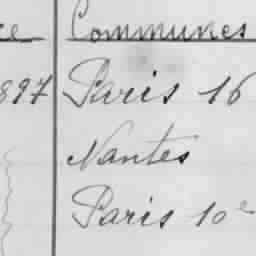 ce Communes
897 Paris 16
Nantes
Paris 10e